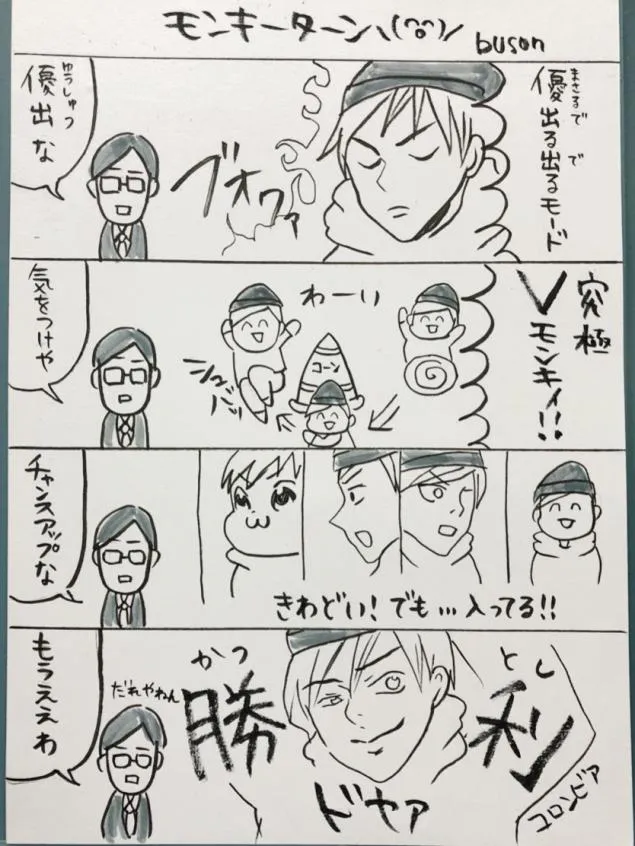 モンキーターン\(^o^)/
buson
まさるで で
優出る出るモード
ブオワァ
ゆうしゅつ
優出な
究極
Vモンキィ!!
わーい
コーン
気をつけや
チャンスアップな
きわどい!でも…入ってる!!
とし
利
かつ
勝
ドヤァ
コロンビア
だれやねん
もうええわ